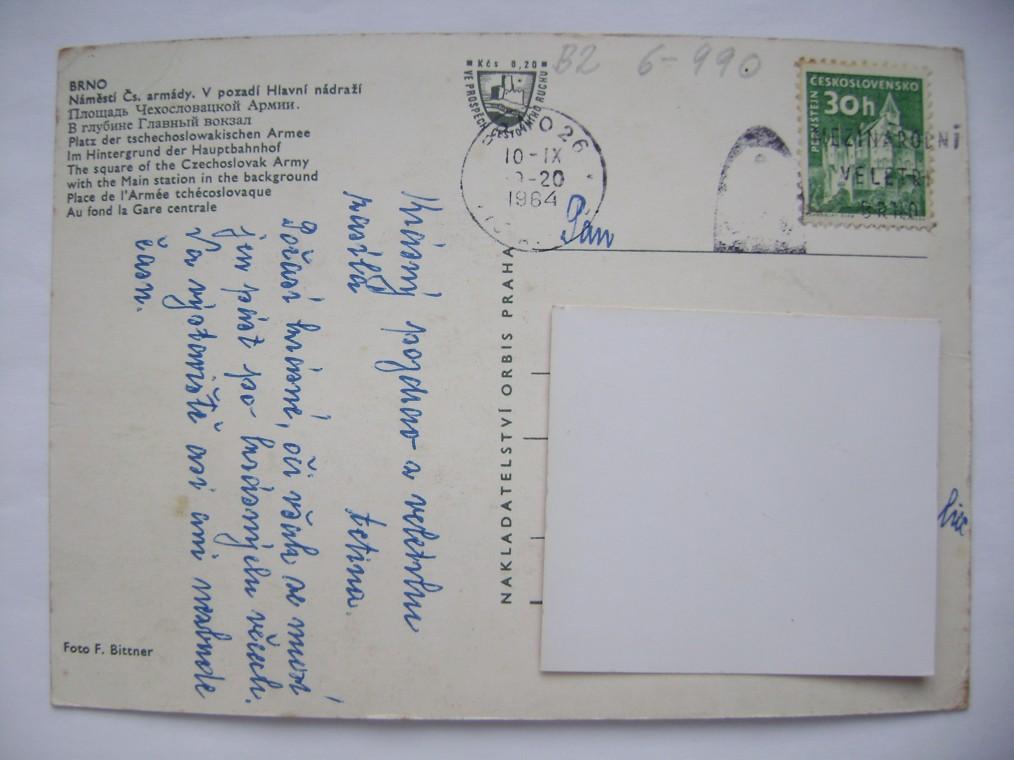 BRNO
Náměstí Čs. armády. V pozadí Hlavní nádraží
Площадь Чехословацкой Армии.
В глубине Главный вокзал
Platz der tschechoslowakischen Armee
Im Hintergrund der Hauptbahnhof
The square of the Czechoslovak Army
with the Main station in the background
Place de l'Armée tchécoslovaque
Au fond la Gare centrale
Kčs 0,20
VE PROSPĚCH CESTOVNÍHO RUCHU
B2 6-990
10-IX
-20
1964
ČESKOSLOVENSKO
30h
PERNŠTEJN
MEZINÁRODNÍ
VELETR
BRNO
Pán
Krásný pozdrav z veletrhu
zasílá tetina.
Počasí krásné, oči však se musí
jen pást po krásných věcech.
Na výstaviště asi ani nezbude
času.
NAKLADATELSTVÍ ORBIS PRAHA
Foto F. Bittner